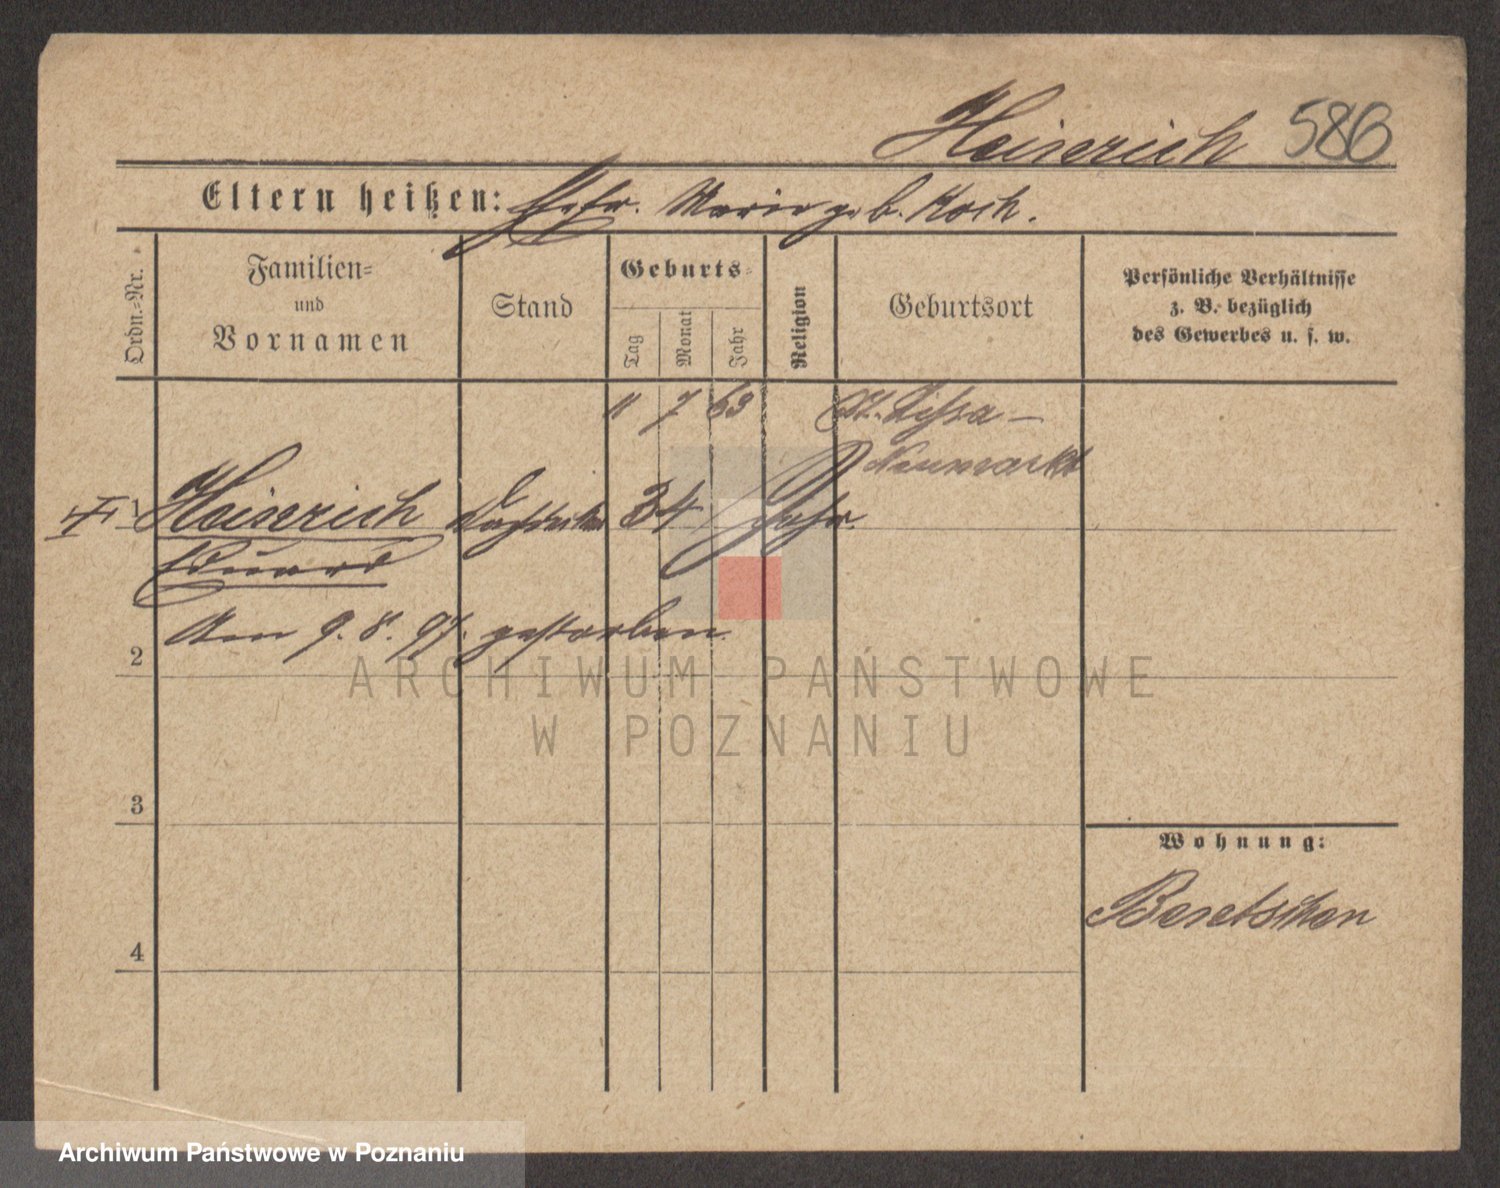 Heinerich 586
Eltern heißen: Ehefr. Marie geb. Koch.
Ordn.-Nr.
Familien-
und
Vornamen
Stand
Geburts-
Tag
Monat
Jahr
Religion
Geburtsort
Persönliche Verhältnisse
z. B. bezüglich
des Gewerbes u. s. w.
11 7 63 Dt. Lissa -
Neumarkt
1 Heinerich 34 Jahr.
Eduard
Am 9. 8. 97. gestorben.
2
ARCHIWUM PAŃSTWOWE
W POZNANIU
3
Wohnung:
4
Archiwum Państwowe w Poznaniu